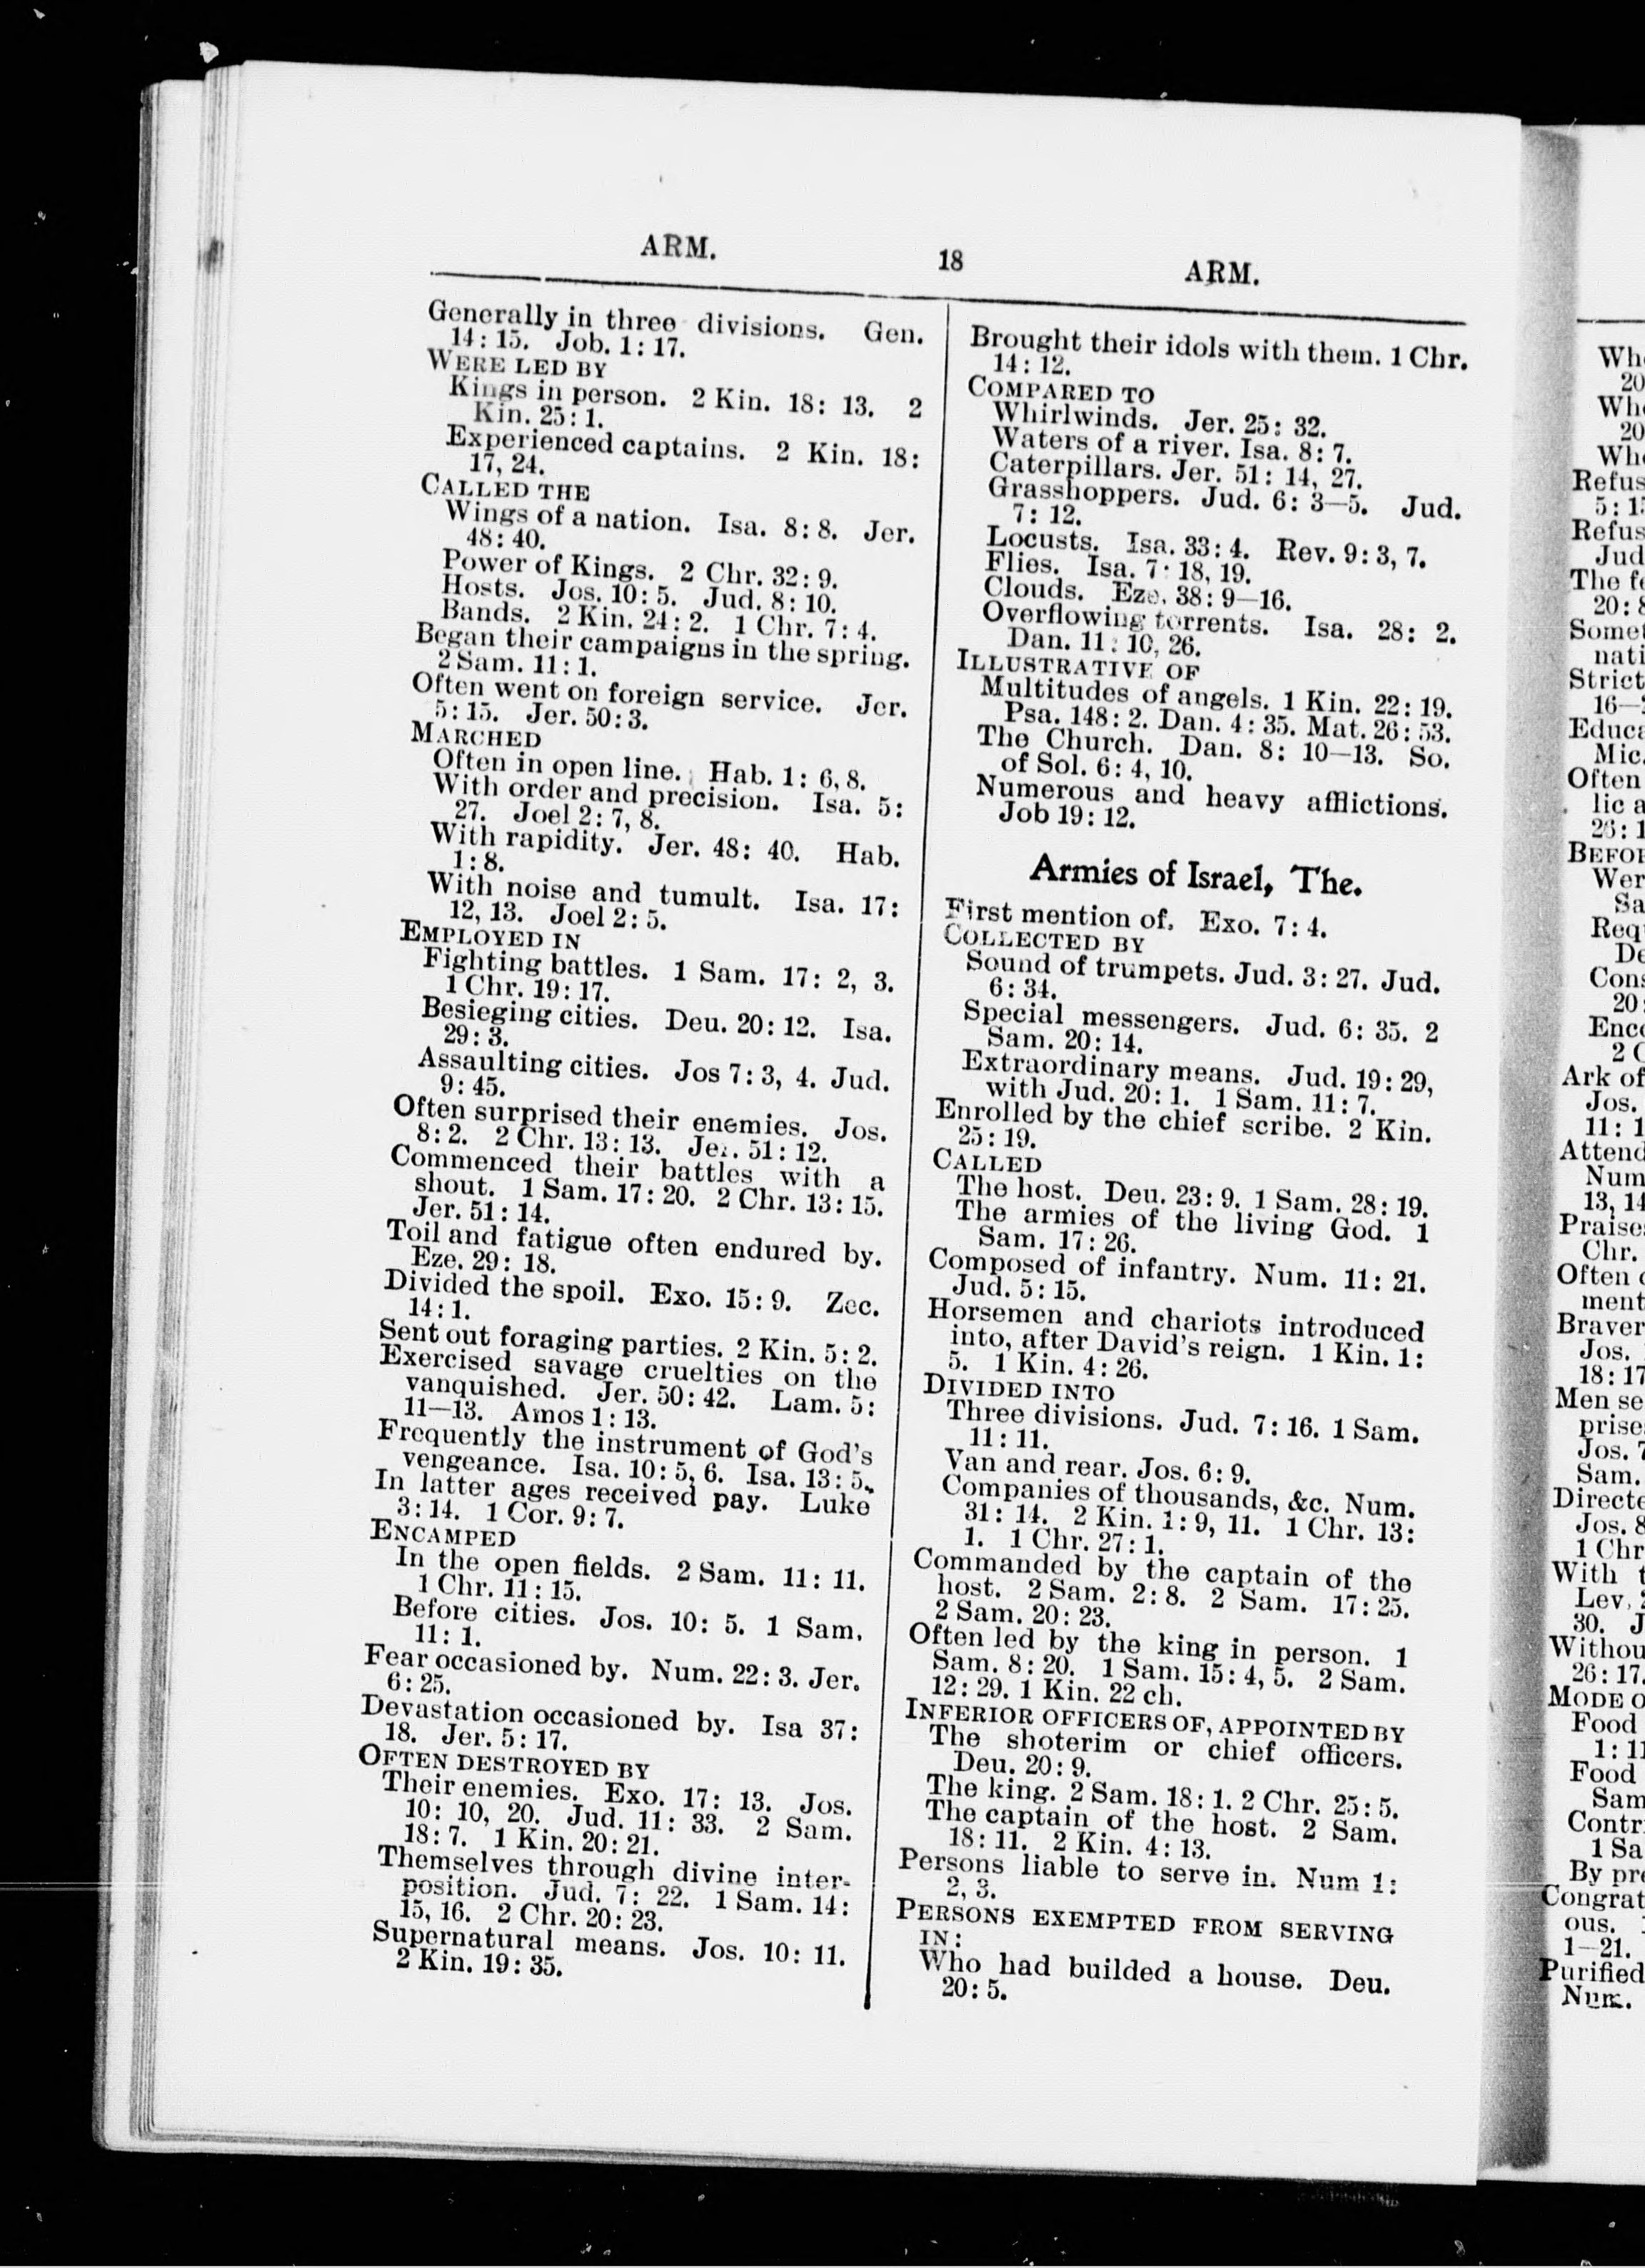 ARM. 18 ARM.
Generally in three divisions. Gen.
14: 15. Job. 1: 17.
WERE LED BY
Kings in person. 2 Kin. 18: 13. 2
Kin. 25: 1.
Experienced captains. 2 Kin. 18:
17, 24.
CALLED THE
Wings of a nation. Isa. 8: 8. Jer.
48: 40.
Power of Kings. 2 Chr. 32: 9.
Hosts. Jos. 10: 5. Jud. 8: 10.
Bands. 2 Kin. 24: 2. 1 Chr. 7: 4.
Began their campaigns in the spring.
2 Sam. 11: 1.
Often went on foreign service. Jer.
5: 15. Jer. 50: 3.
MARCHED
Often in open line. Hab. 1: 6, 8.
With order and precision. Isa. 5:
27. Joel 2: 7, 8.
With rapidity. Jer. 48: 40. Hab.
1: 8.
With noise and tumult. Isa. 17:
12, 13. Joel 2: 5.
EMPLOYED IN
Fighting battles. 1 Sam. 17: 2, 3.
1 Chr. 19: 17.
Besieging cities. Deu. 20: 12. Isa.
29: 3.
Assaulting cities. Jos 7: 3, 4. Jud.
9: 45.
Often surprised their enemies. Jos.
8: 2. 2 Chr. 13: 13. Jer. 51: 12.
Commenced their battles with a
shout. 1 Sam. 17: 20. 2 Chr. 13: 15.
Jer. 51: 14.
Toil and fatigue often endured by.
Eze. 29: 18.
Divided the spoil. Exo. 15: 9. Zec.
14: 1.
Sent out foraging parties. 2 Kin. 5: 2.
Exercised savage cruelties on the
vanquished. Jer. 50: 42. Lam. 5:
11—13. Amos 1: 13.
Frequently the instrument of God's
vengeance. Isa. 10: 5, 6. Isa. 13: 5.
In latter ages received pay. Luke
3: 14. 1 Cor. 9: 7.
ENCAMPED
In the open fields. 2 Sam. 11: 11.
1 Chr. 11: 15.
Before cities. Jos. 10: 5. 1 Sam.
11: 1.
Fear occasioned by. Num. 22: 3. Jer.
6: 25.
Devastation occasioned by. Isa 37:
18. Jer. 5: 17.
OFTEN DESTROYED BY
Their enemies. Exo. 17: 13. Jos.
10: 10, 20. Jud. 11: 33. 2 Sam.
18: 7. 1 Kin. 20: 21.
Themselves through divine inter-
position. Jud. 7: 22. 1 Sam. 14:
15, 16. 2 Chr. 20: 23.
Supernatural means. Jos. 10: 11.
2 Kin. 19: 35.
Brought their idols with them. 1 Chr.
14: 12.
COMPARED TO
Whirlwinds. Jer. 25: 32.
Waters of a river. Isa. 8: 7.
Caterpillars. Jer. 51: 14, 27.
Grasshoppers. Jud. 6: 3—5. Jud.
7: 12.
Locusts. Isa. 33: 4. Rev. 9: 3, 7.
Flies. Isa. 7: 18, 19.
Clouds. Eze. 38: 9—16.
Overflowing torrents. Isa. 28: 2.
Dan. 11: 10, 26.
ILLUSTRATIVE OF
Multitudes of angels. 1 Kin. 22: 19.
Psa. 148: 2. Dan. 4: 35. Mat. 26: 53.
The Church. Dan. 8: 10—13. So.
of Sol. 6: 4, 10.
Numerous and heavy afflictions.
Job 19: 12.
Armies of Israel, The.
First mention of. Exo. 7: 4.
COLLECTED BY
Sound of trumpets. Jud. 3: 27. Jud.
6: 34.
Special messengers. Jud. 6: 35. 2
Sam. 20: 14.
Extraordinary means. Jud. 19: 29,
with Jud. 20: 1. 1 Sam. 11: 7.
Enrolled by the chief scribe. 2 Kin.
25: 19.
CALLED
The host. Deu. 23: 9. 1 Sam. 28: 19.
The armies of the living God. 1
Sam. 17: 26.
Composed of infantry. Num. 11: 21.
Jud. 5: 15.
Horsemen and chariots introduced
into, after David's reign. 1 Kin. 1:
5. 1 Kin. 4: 26.
DIVIDED INTO
Three divisions. Jud. 7: 16. 1 Sam.
11: 11.
Van and rear. Jos. 6: 9.
Companies of thousands, &c. Num.
31: 14. 2 Kin. 1: 9, 11. 1 Chr. 13:
1. 1 Chr. 27: 1.
Commanded by the captain of the
host. 2 Sam. 2: 8. 2 Sam. 17: 25.
2 Sam. 20: 23.
Often led by the king in person. 1
Sam. 8: 20. 1 Sam. 15: 4, 5. 2 Sam.
12: 29. 1 Kin. 22 ch.
INFERIOR OFFICERS OF, APPOINTED BY
The shoterim or chief officers.
Deu. 20: 9.
The king. 2 Sam. 18: 1. 2 Chr. 25: 5.
The captain of the host. 2 Sam.
18: 11. 2 Kin. 4: 13.
Persons liable to serve in. Num 1:
2, 3.
PERSONS EXEMPTED FROM SERVING
IN:
Who had builded a house. Deu.
20: 5.